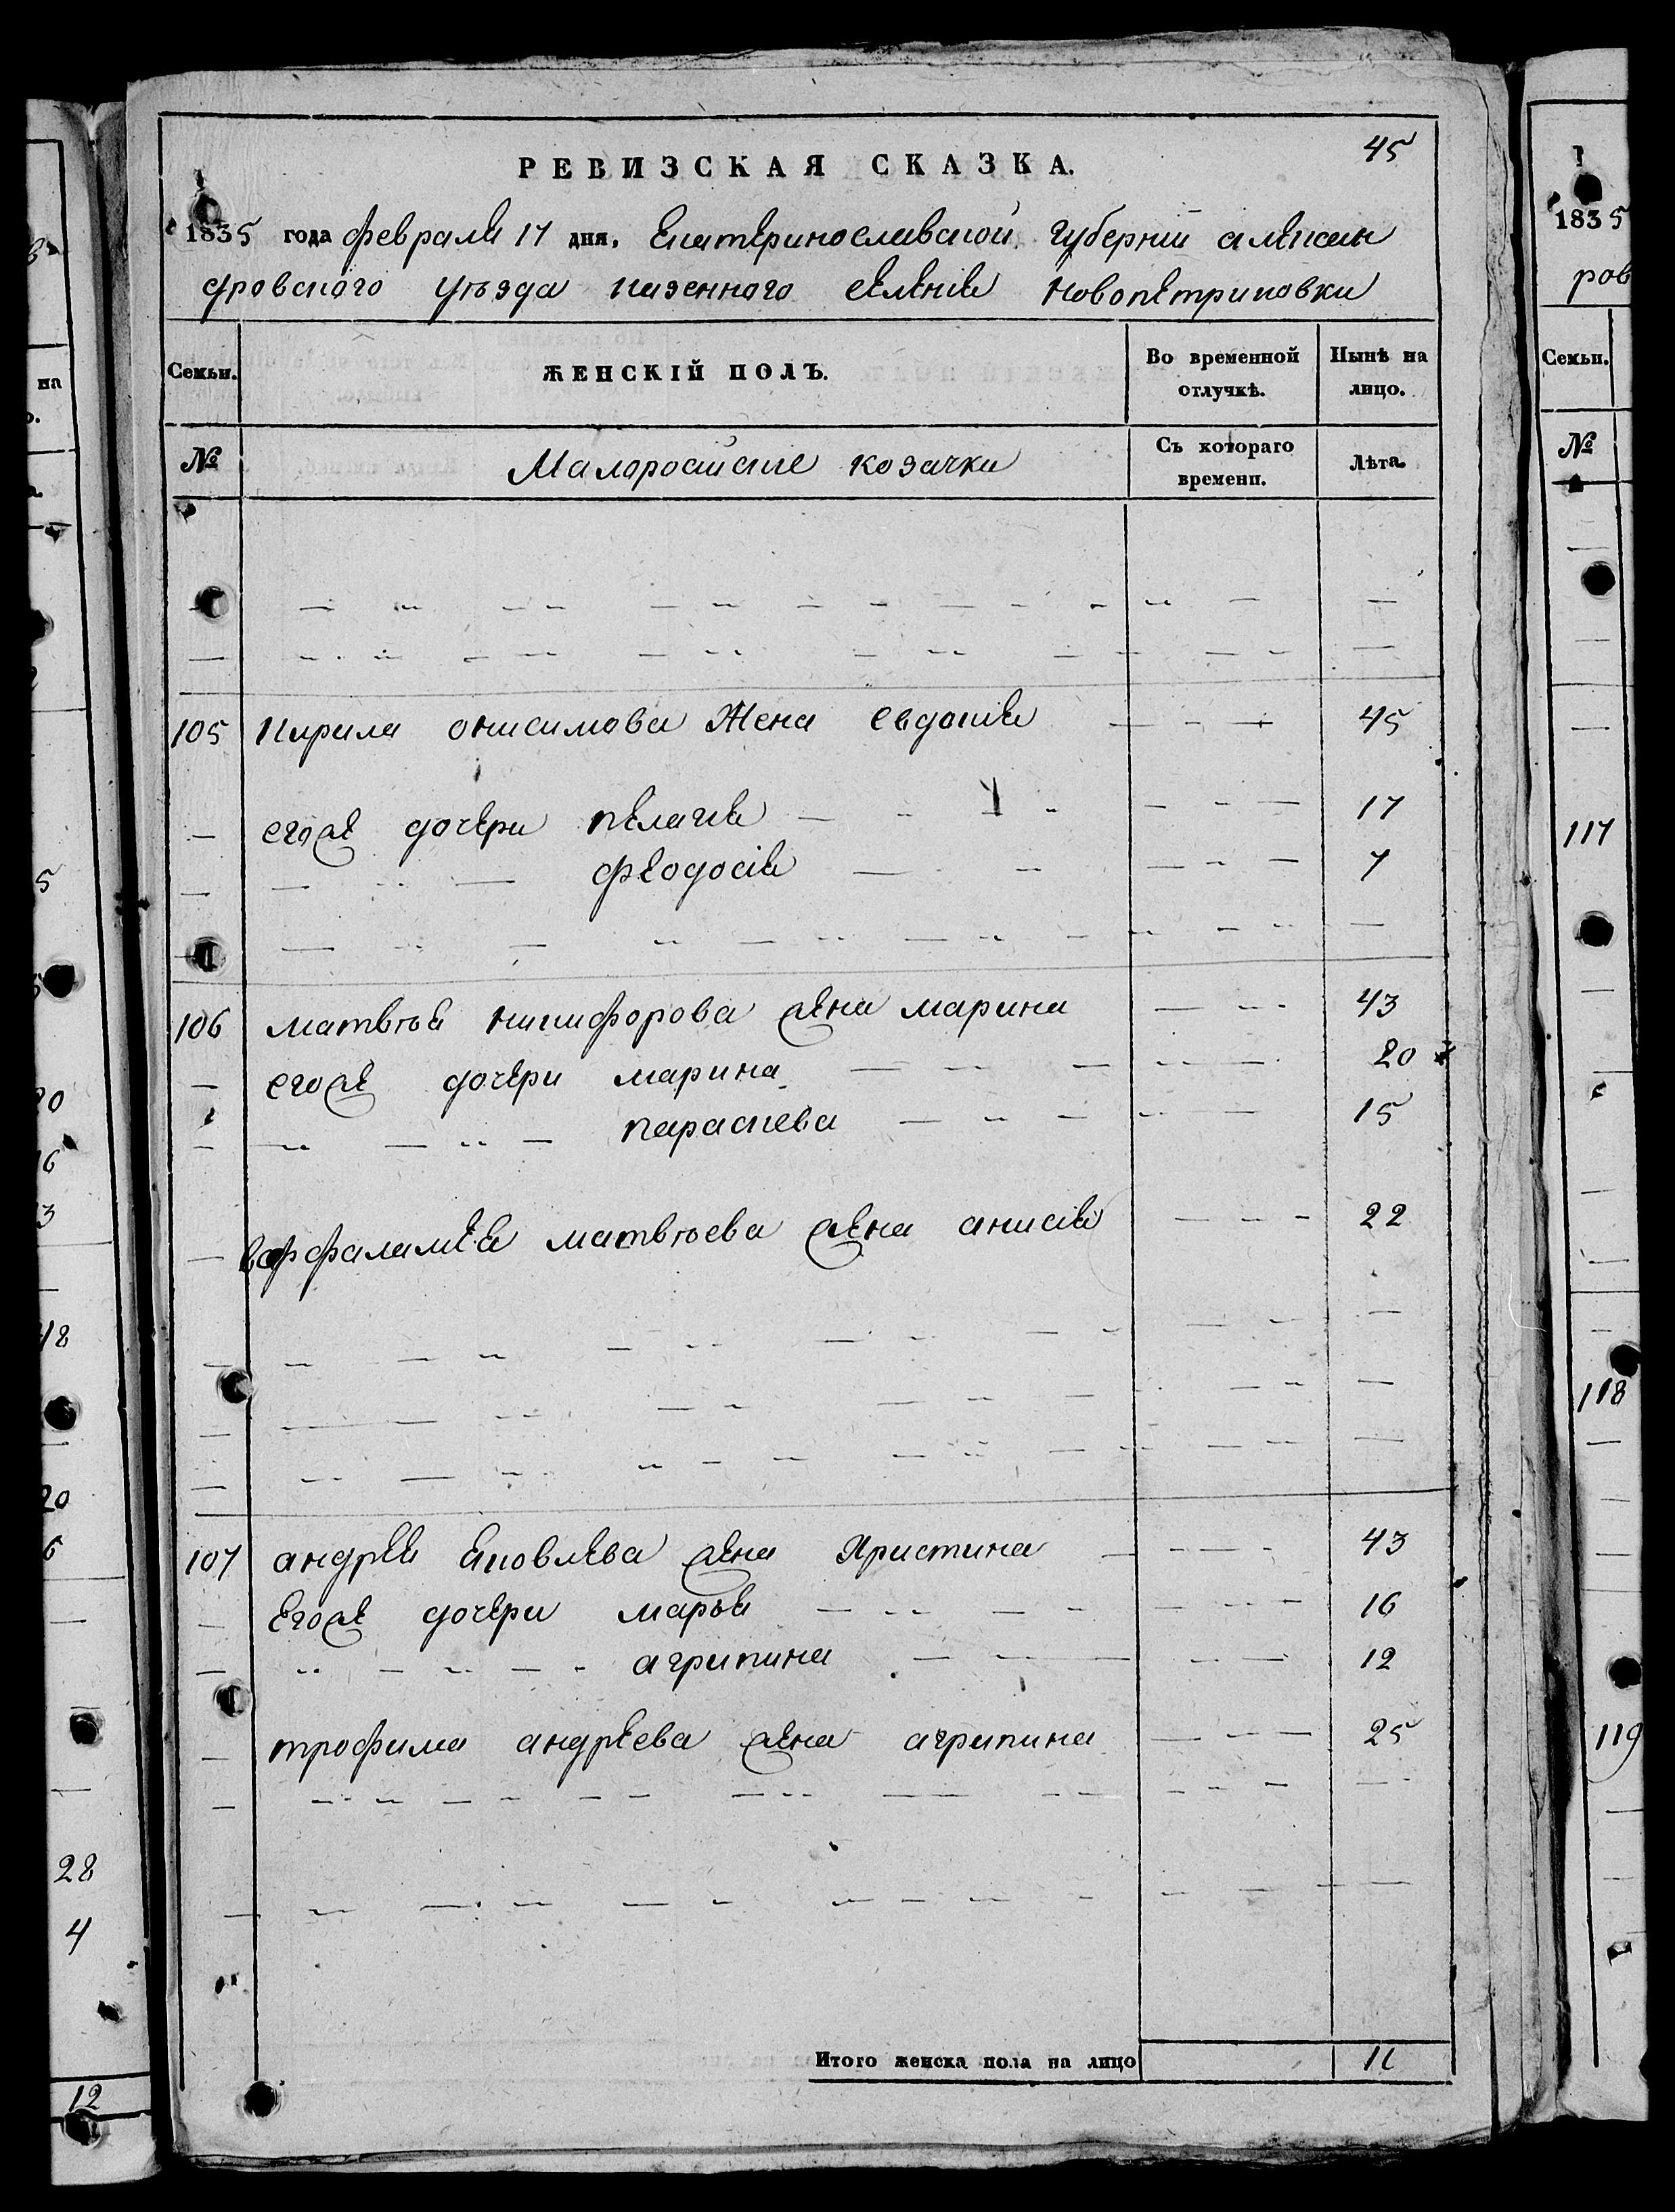 45
РЕВИЗСКАЯ СКАЗКА.
1835 года февраля 17 дня, Екатеринославской Губернии алексан
дровского уѣзда казенного селения новопетриковки
Семьи. ЖЕНСКІЙ ПОЛЪ. Во временной отлучкѣ. Нынѣ на лицо.
№ Малоросийские козачки Съ котораго времени. Лѣта.
105 Кирила онисимова Жена евдокия 45
егоже дочери пелагия 17
феодосія 7
106 матвѣя никифорова жена марина 43
егоже дочери марина 20
параскева 15
варфаламея матвѣева жена анисия 22
107 андрея яковлева жена Христина 43
Егоже дочери марья 16
агрипина 12
трофима андреева жена агрипина 25
Итого женска пола на лицо 11
1835
ров
Семьи.
№
117
118
119
на
28
4
12